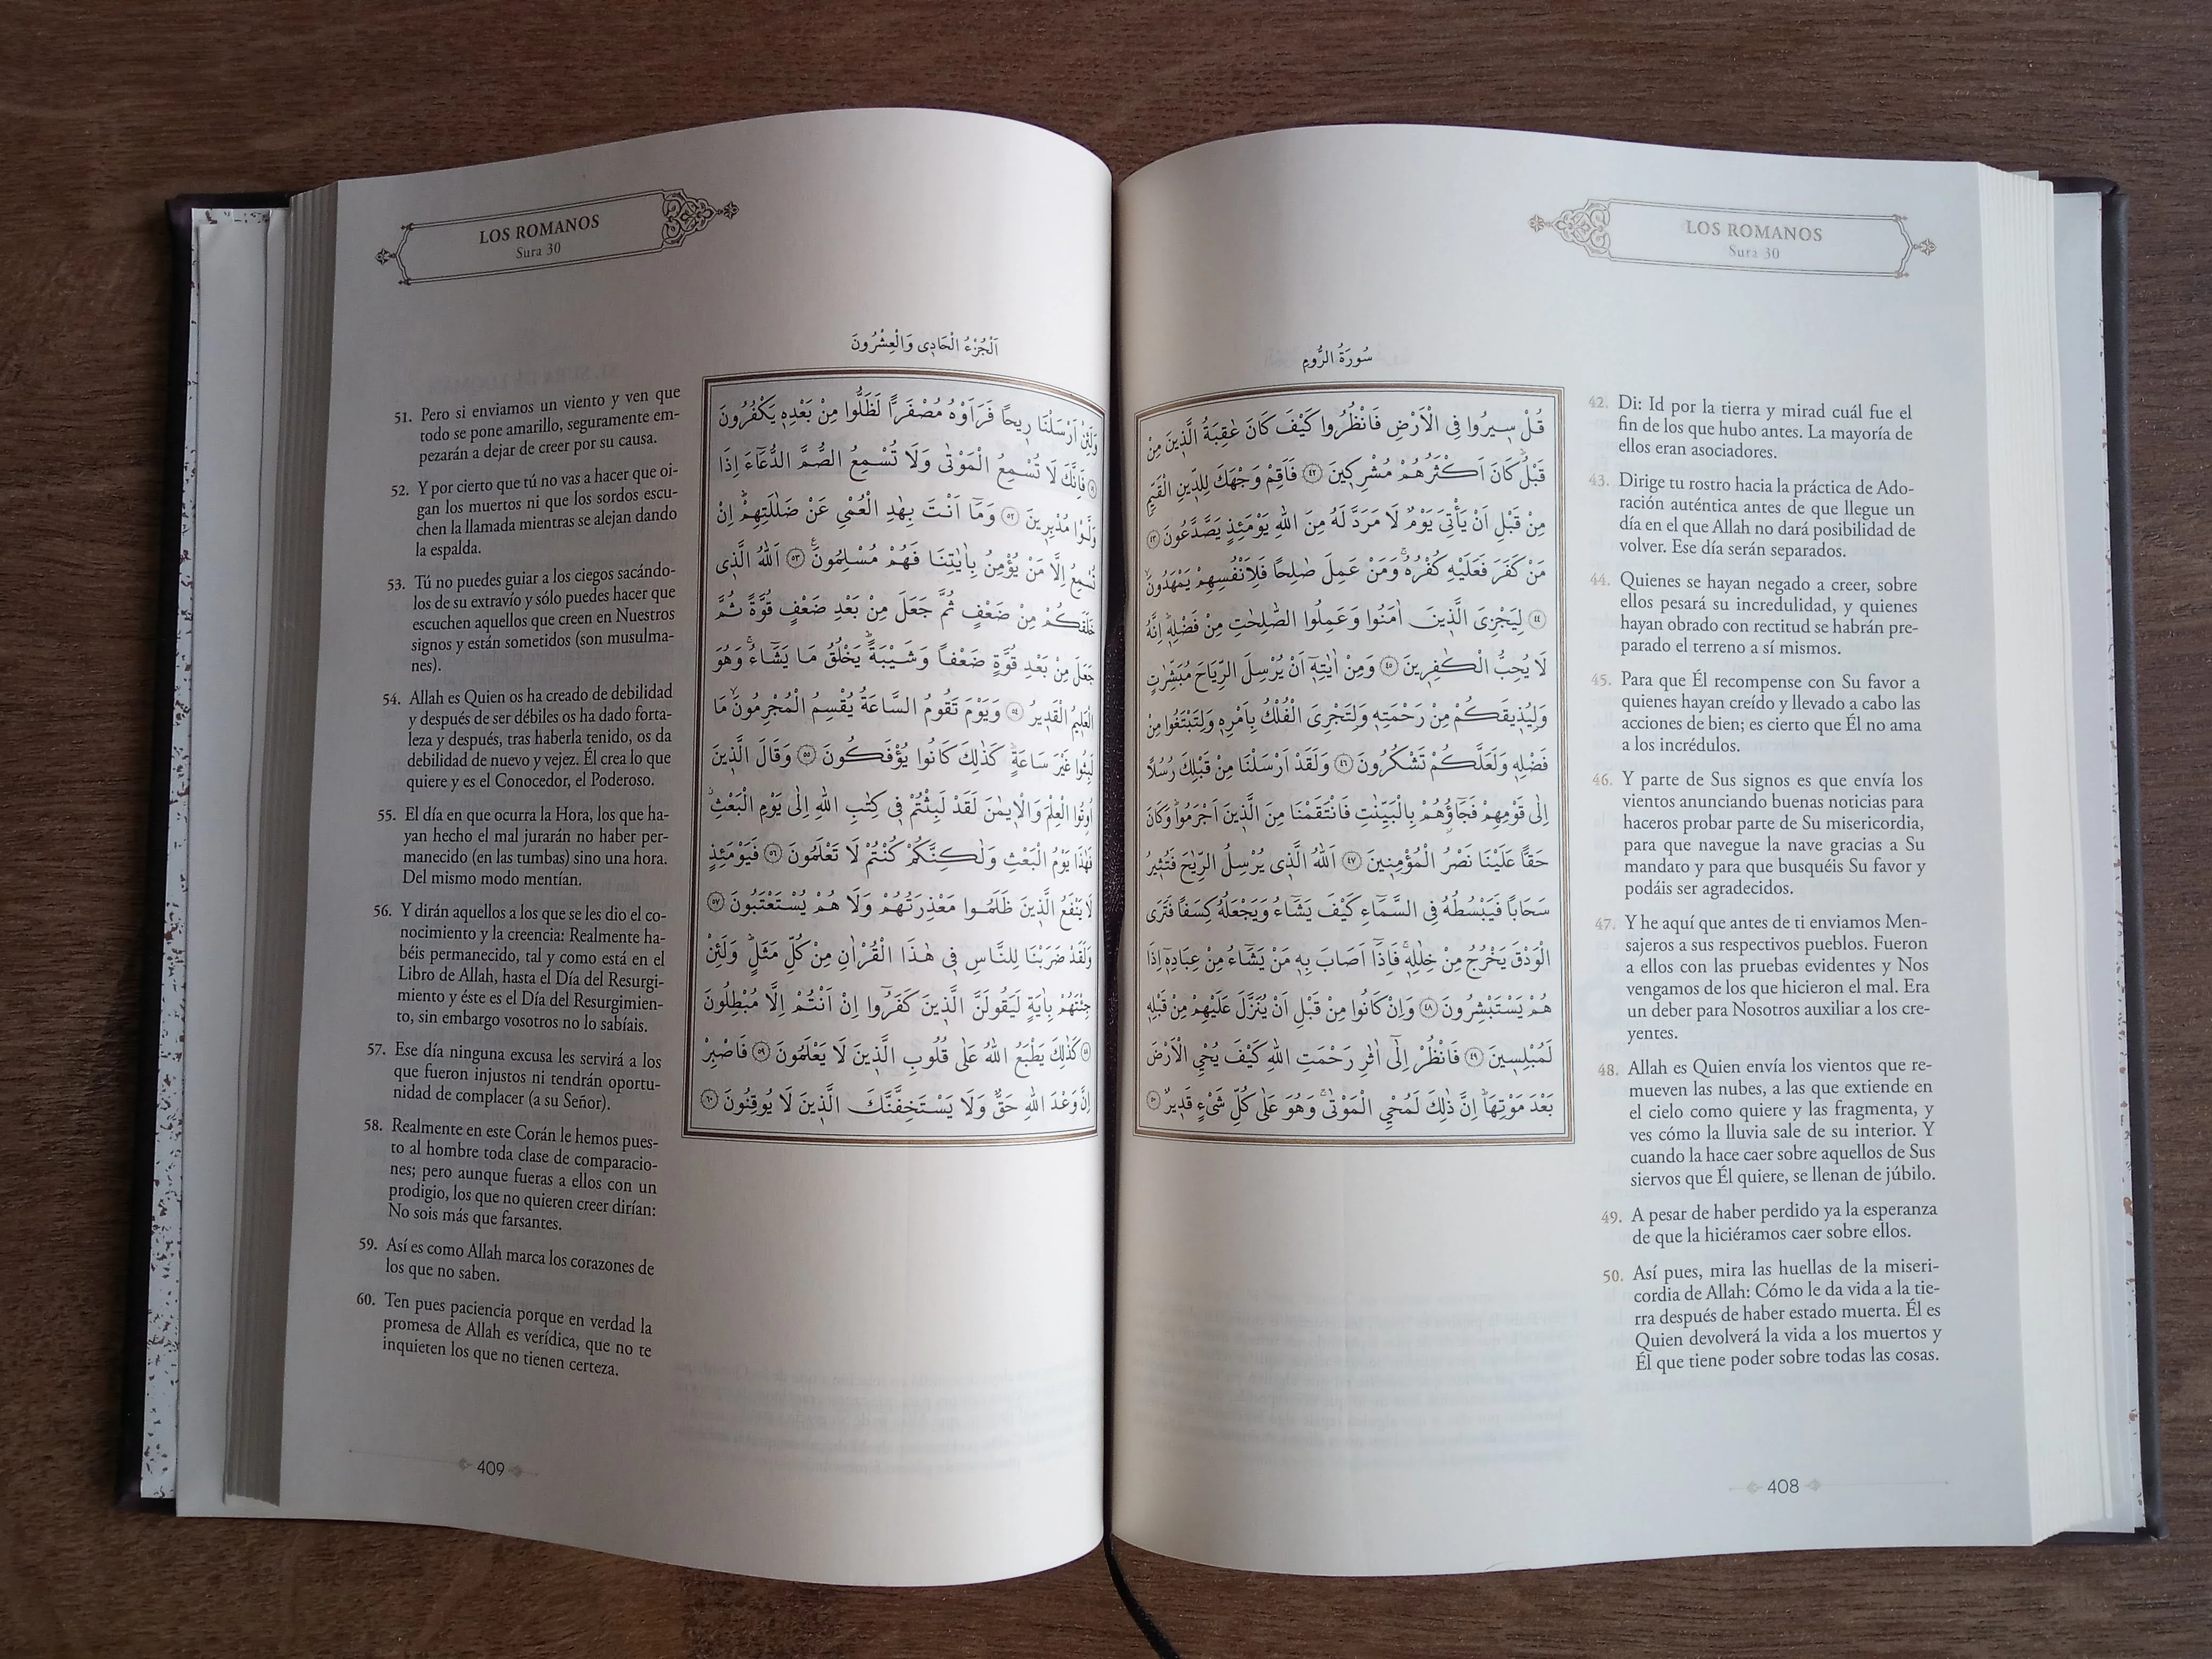 LOS ROMANOS
Sura 30
سُورَةُ الرُّومِ
قُلْ سِيرُوا فِى الْاَرْضِ فَانْظُرُوا كَيْفَ كَانَ عَاقِبَةُ الَّذِينَ مِنْ
قَبْلُ كَانَ اَكْثَرُهُمْ مُشْرِكِينَ ﴿٤٢﴾ فَاَقِمْ وَجْهَكَ لِلدِّينِ الْقَيِّمِ
مِنْ قَبْلِ اَنْ يَأْتِىَ يَوْمٌ لَا مَرَدَّ لَهُ مِنَ اللهِ يَوْمَئِذٍ يَصَّدَّعُونَ ﴿٤٣﴾
مَنْ كَفَرَ فَعَلَيْهِ كُفْرُهُ وَمَنْ عَمِلَ صَالِحًا فَلِاَنْفُسِهِمْ يَمْهَدُونَ
﴿٤٤﴾ لِيَجْزِىَ الَّذِينَ اٰمَنُوا وَعَمِلُوا الصَّالِحَاتِ مِنْ فَضْلِهِ اِنَّهُ
لَا يُحِبُّ الْكَافِرِينَ ﴿٤٥﴾ وَمِنْ اٰيَاتِهِ اَنْ يُرْسِلَ الرِّيَاحَ مُبَشِّرَاتٍ
وَلِيُذِيقَكُمْ مِنْ رَحْمَتِهِ وَلِتَجْرِىَ الْفُلْكُ بِاَمْرِهِ وَلِتَبْتَغُوا مِنْ
فَضْلِهِ وَلَعَلَّكُمْ تَشْكُرُونَ ﴿٤٦﴾ وَلَقَدْ اَرْسَلْنَا مِنْ قَبْلِكَ رُسُلًا
اِلٰى قَوْمِهِمْ فَجَاؤُهُمْ بِالْبَيِّنَاتِ فَانْتَقَمْنَا مِنَ الَّذِينَ اَجْرَمُوا وَكَانَ
حَقًّا عَلَيْنَا نَصْرُ الْمُؤْمِنِينَ ﴿٤٧﴾ اَللهُ الَّذِى يُرْسِلُ الرِّيَاحَ فَتُثِيرُ
سَحَابًا فَيَبْسُطُهُ فِى السَّمَاءِ كَيْفَ يَشَاءُ وَيَجْعَلُهُ كِسَفًا فَتَرَى
الْوَدْقَ يَخْرُجُ مِنْ خِلَالِهِ فَاِذَا اَصَابَ بِهِ مَنْ يَشَاءُ مِنْ عِبَادِهِ اِذَا
هُمْ يَسْتَبْشِرُونَ ﴿٤٨﴾ وَاِنْ كَانُوا مِنْ قَبْلِ اَنْ يُنَزَّلَ عَلَيْهِمْ مِنْ قَبْلِهِ
لَمُبْلِسِينَ ﴿٤٩﴾ فَانْظُرْ اِلٰى اٰثَارِ رَحْمَتِ اللهِ كَيْفَ يُحْيِ الْاَرْضَ
بَعْدَ مَوْتِهَا اِنَّ ذٰلِكَ لَمُحْيِ الْمَوْتٰى وَهُوَ عَلٰى كُلِّ شَىْءٍ قَدِيرٌ ﴿٥٠﴾
42. Di: Id por la tierra y mirad cuál fue el
fin de los que hubo antes. La mayoría de
ellos eran asociadores.
43. Dirige tu rostro hacia la práctica de Ado-
ración auténtica antes de que llegue un
día en el que Allah no dará posibilidad de
volver. Ese día serán separados.
44. Quienes se hayan negado a creer, sobre
ellos pesará su incredulidad, y quienes
hayan obrado con rectitud se habrán pre-
parado el terreno a sí mismos.
45. Para que Él recompense con Su favor a
quienes hayan creído y llevado a cabo las
acciones de bien; es cierto que Él no ama
a los incrédulos.
46. Y parte de Sus signos es que envía los
vientos anunciando buenas noticias para
haceros probar parte de Su misericordia,
para que navegue la nave gracias a Su
mandato y para que busquéis Su favor y
podáis ser agradecidos.
47. Y he aquí que antes de ti enviamos Men-
sajeros a sus respectivos pueblos. Fueron
a ellos con las pruebas evidentes y Nos
vengamos de los que hicieron el mal. Era
un deber para Nosotros auxiliar a los cre-
yentes.
48. Allah es Quien envía los vientos que re-
mueven las nubes, a las que extiende en
el cielo como quiere y las fragmenta, y
ves cómo la lluvia sale de su interior. Y
cuando la hace caer sobre aquellos de Sus
siervos que Él quiere, se llenan de júbilo.
49. A pesar de haber perdido ya la esperanza
de que la hiciéramos caer sobre ellos.
50. Así pues, mira las huellas de la miseri-
cordia de Allah: Cómo le da vida a la tie-
rra después de haber estado muerta. Él es
Quien devolverá la vida a los muertos y
Él que tiene poder sobre todas las cosas.
408
LOS ROMANOS
Sura 30
اَلْجُزْءُ الْحَادِى وَالْعِشْرُونَ
وَلَئِنْ اَرْسَلْنَا رِيحًا فَرَاَوْهُ مُصْفَرًّا لَظَلُّوا مِنْ بَعْدِهِ يَكْفُرُونَ
﴿٥١﴾ فَاِنَّكَ لَا تُسْمِعُ الْمَوْتٰى وَلَا تُسْمِعُ الصُّمَّ الدُّعَاءَ اِذَا
وَلَّوْا مُدْبِرِينَ ﴿٥٢﴾ وَمَا اَنْتَ بِهَادِ الْعُمْيِ عَنْ ضَلَالَتِهِمْ اِنْ
تُسْمِعُ اِلَّا مَنْ يُؤْمِنُ بِاٰيَاتِنَا فَهُمْ مُسْلِمُونَ ﴿٥٣﴾ اَللهُ الَّذِى
خَلَقَكُمْ مِنْ ضَعْفٍ ثُمَّ جَعَلَ مِنْ بَعْدِ ضَعْفٍ قُوَّةً ثُمَّ
جَعَلَ مِنْ بَعْدِ قُوَّةٍ ضَعْفًا وَشَيْبَةً يَخْلُقُ مَا يَشَاءُ وَهُوَ
الْعَلِيمُ الْقَدِيرُ ﴿٥٤﴾ وَيَوْمَ تَقُومُ السَّاعَةُ يُقْسِمُ الْمُجْرِمُونَ مَا
لَبِثُوا غَيْرَ سَاعَةٍ كَذٰلِكَ كَانُوا يُؤْفَكُونَ ﴿٥٥﴾ وَقَالَ الَّذِينَ
اُوتُوا الْعِلْمَ وَالْاِيمَانَ لَقَدْ لَبِثْتُمْ فِى كِتَابِ اللهِ اِلٰى يَوْمِ الْبَعْثِ
فَهٰذَا يَوْمُ الْبَعْثِ وَلٰكِنَّكُمْ كُنْتُمْ لَا تَعْلَمُونَ ﴿٥٦﴾ فَيَوْمَئِذٍ
لَا يَنْفَعُ الَّذِينَ ظَلَمُوا مَعْذِرَتُهُمْ وَلَا هُمْ يُسْتَعْتَبُونَ ﴿٥٧﴾
وَلَقَدْ ضَرَبْنَا لِلنَّاسِ فِى هٰذَا الْقُرْاٰنِ مِنْ كُلِّ مَثَلٍ وَلَئِنْ
جِئْتَهُمْ بِاٰيَةٍ لَيَقُولَنَّ الَّذِينَ كَفَرُوا اِنْ اَنْتُمْ اِلَّا مُبْطِلُونَ
﴿٥٨﴾ كَذٰلِكَ يَطْبَعُ اللهُ عَلٰى قُلُوبِ الَّذِينَ لَا يَعْلَمُونَ ﴿٥٩﴾ فَاصْبِرْ
اِنَّ وَعْدَ اللهِ حَقٌّ وَلَا يَسْتَخِفَّنَّكَ الَّذِينَ لَا يُوقِنُونَ ﴿٦٠﴾
51. Pero si enviamos un viento y ven que
todo se pone amarillo, seguramente em-
pezarán a dejar de creer por su causa.
52. Y por cierto que tú no vas a hacer que oi-
gan los muertos ni que los sordos escu-
chen la llamada mientras se alejan dando
la espalda.
53. Tú no puedes guiar a los ciegos sacándo-
los de su extravío y sólo puedes hacer que
escuchen aquellos que creen en Nuestros
signos y están sometidos (son musulma-
nes).
54. Allah es Quien os ha creado de debilidad
y después de ser débiles os ha dado forta-
leza y después, tras haberla tenido, os da
debilidad de nuevo y vejez. Él crea lo que
quiere y es el Conocedor, el Poderoso.
55. El día en que ocurra la Hora, los que ha-
yan hecho el mal jurarán no haber per-
manecido (en las tumbas) sino una hora.
Del mismo modo mentían.
56. Y dirán aquellos a los que se les dio el co-
nocimiento y la creencia: Realmente ha-
béis permanecido, tal y como está en el
Libro de Allah, hasta el Día del Resurgi-
miento y éste es el Día del Resurgimien-
to, sin embargo vosotros no lo sabíais.
57. Ese día ninguna excusa les servirá a los
que fueron injustos ni tendrán oportu-
nidad de complacer (a su Señor).
58. Realmente en este Corán le hemos pues-
to al hombre toda clase de comparacio-
nes; pero aunque fueras a ellos con un
prodigio, los que no quieren creer dirían:
No sois más que farsantes.
59. Así es como Allah marca los corazones de
los que no saben.
60. Ten pues paciencia porque en verdad la
promesa de Allah es verídica, que no te
inquieten los que no tienen certeza.
409